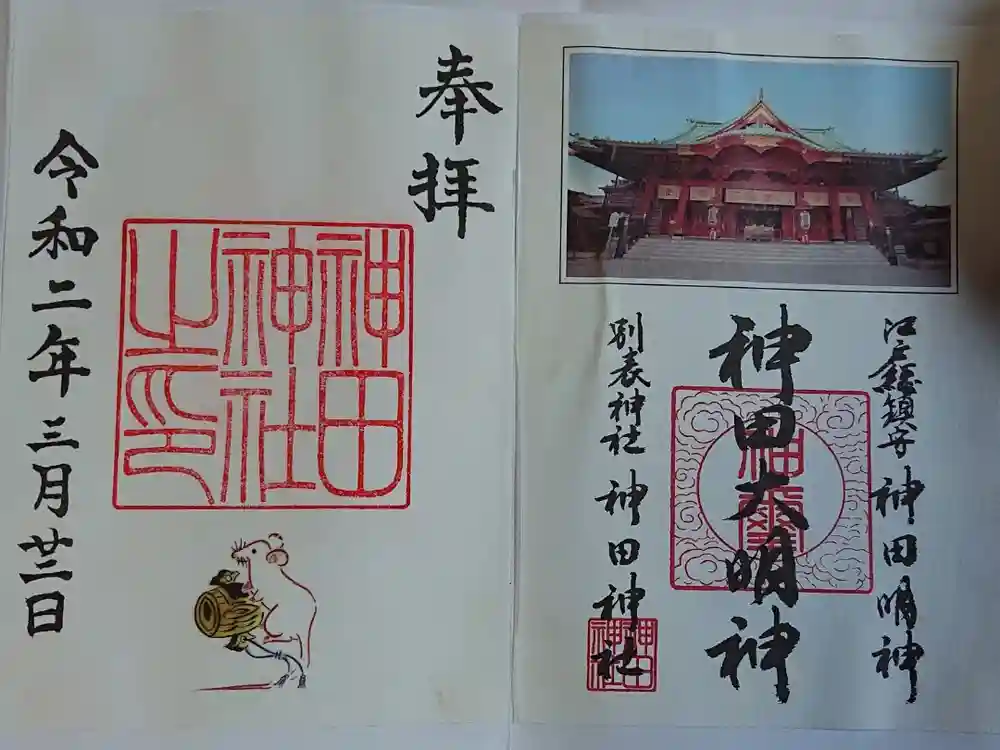 奉拝
神田
神社
之印
令和二年三月廿三日
江戸総鎮守 神田明神
神田大明神
神璽
別表神社 神田神社
神田
神社